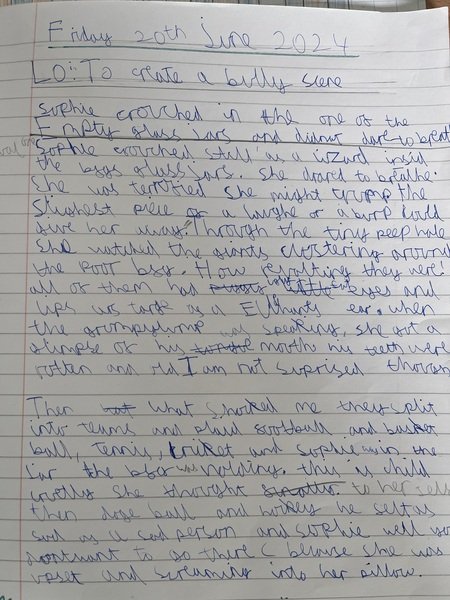 Friday 20th June 2024
LO: To create a bully scene
Sophie crouched in the one of the
Empty glass jars and didn't dare to breath
Sophie crouched still as a lizard insid
the bgfs glass jars. She dared to breathe.
She was terrified she might trump the
slighest piece or a laughe or a burp could
give her away. Through the tiny peep hole
She watched the giants clustering around
the poor bfg. How revolting they were!
all of them had eyes and
lips was targe as a Elthants ear. when
the grumplump was speaking, she got a
glimpse of his mouth his teeth were
rotten and rld I am not suprised though
Then what shocked me they split
into teams and plaid football and basket
ball, Tennis, cricket and sophie was in the
jar the bfg was holding. this is child
cruelty she thought to her self
then doge ball and hockey he selt as
sad as a sad person and sophie well you
dontwant to go there (because she was
upset and screaming into her pillow.